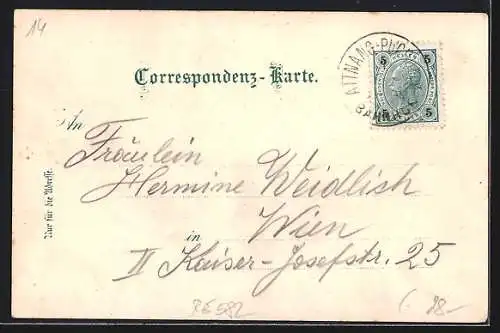 14
ATTNANG-PUCH
BAHNHOF
5 5
5 5
Correspondenz-Karte.
An
Fräulein
Hermine Weidlich
Wien
in
II Kaiser-Josefstr. 25
Nur für die Adresse.
RE582